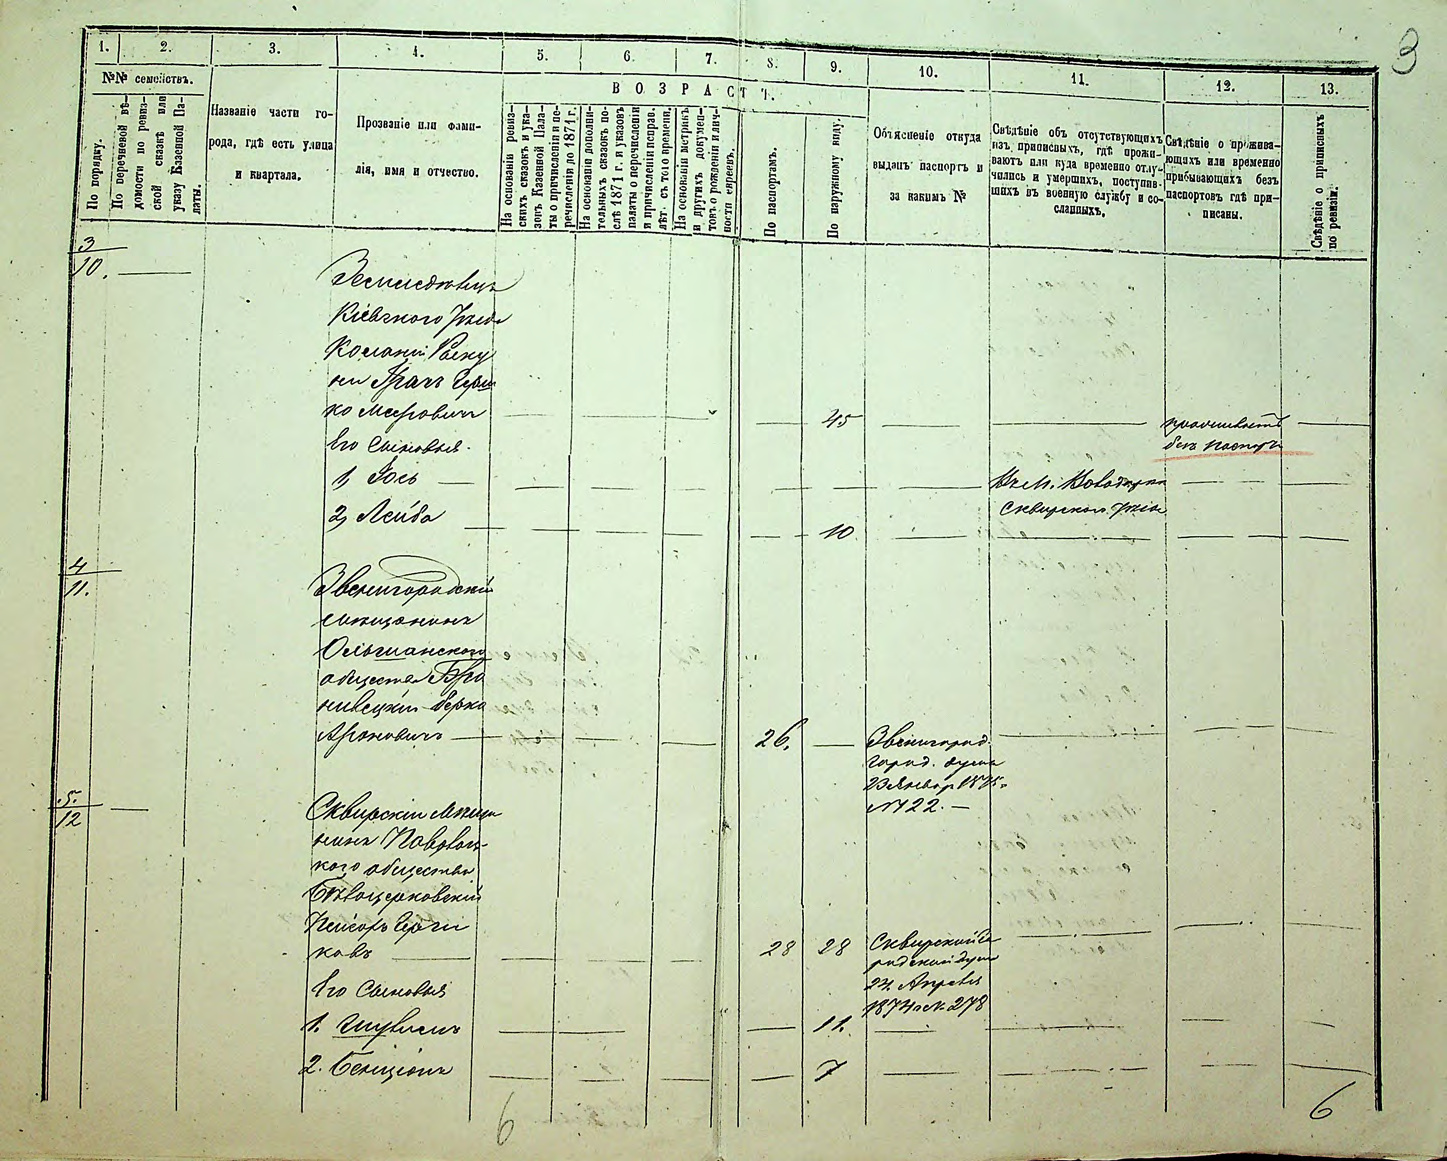 3
1.
2.
3.
4.
5.
6.
7.
8.
9.
10.
11.
12.
13.
№№ семействъ.
По порядку.
По перечневой вѣ-
домости по ревиз-
ской сказкѣ или
указу Казенной Па-
латы.
Названіе части го-
рода, гдѣ есть улица
и квартала.
Прозваніе или фами-
лія, имя и отчество.
ВОЗРАСТЪ.
На основаніи ревиз-
скихъ сказокъ и ука-
зовъ Казенной Пала-
ты о причисленіи и пе-
речисленіи до 1871 г.
На основаніи дополни-
тельныхъ сказокъ по-
слѣ 1871 г. и указовъ
палаты о перечисленіи
и причисленіи исправ.
лѣт. съ того времени.
На основаніи метрикъ
и другихъ докумен-
товъ о рожденіи и лич-
ности евреевъ.
По паспортамъ.
По наружному виду.
Объясненіе откуда
выданъ паспортъ и
за какимъ №
Свѣдѣніе объ отсутствующихъ
изъ приписныхъ, гдѣ прожи-
ваютъ или куда временно отлу-
чились и умершихъ, поступив-
шихъ въ военную службу и со-
сланныхъ.
Свѣдѣніе о прожива-
ющихъ или временно
прибывающихъ безъ
паспортовъ гдѣ при-
писаны.
Свѣдѣніе о приписныхъ
по ревизіи.
3
10.
Земледѣлецъ
Кіевского Уѣзда
Колоніи
Грачъ Герш
ко Мееровичъ
45
проживаетъ
безъ паспорта
Его сыновья
1, Іось
Въ М.
Сквирского Уѣзда
2, Лейба
10
4
11.
Звенигородскій
мѣщанинъ
Ольшанского
общества Бро
нивецкій Берко
Ароновичъ
26.
Звенигород.
город. дума
23 Январ 1875
№ 122.
5.
12
Сквирскій Мѣща
нинъ Паволоч-
кого общества
Бѣлоцерковскій
Пейсахъ Герш
ковъ
28
28
Сквирской Го
родской думы
24 Апрѣля
1874 № 278
Его сыновья
1.
11.
2. Бенціонъ
7
6
6